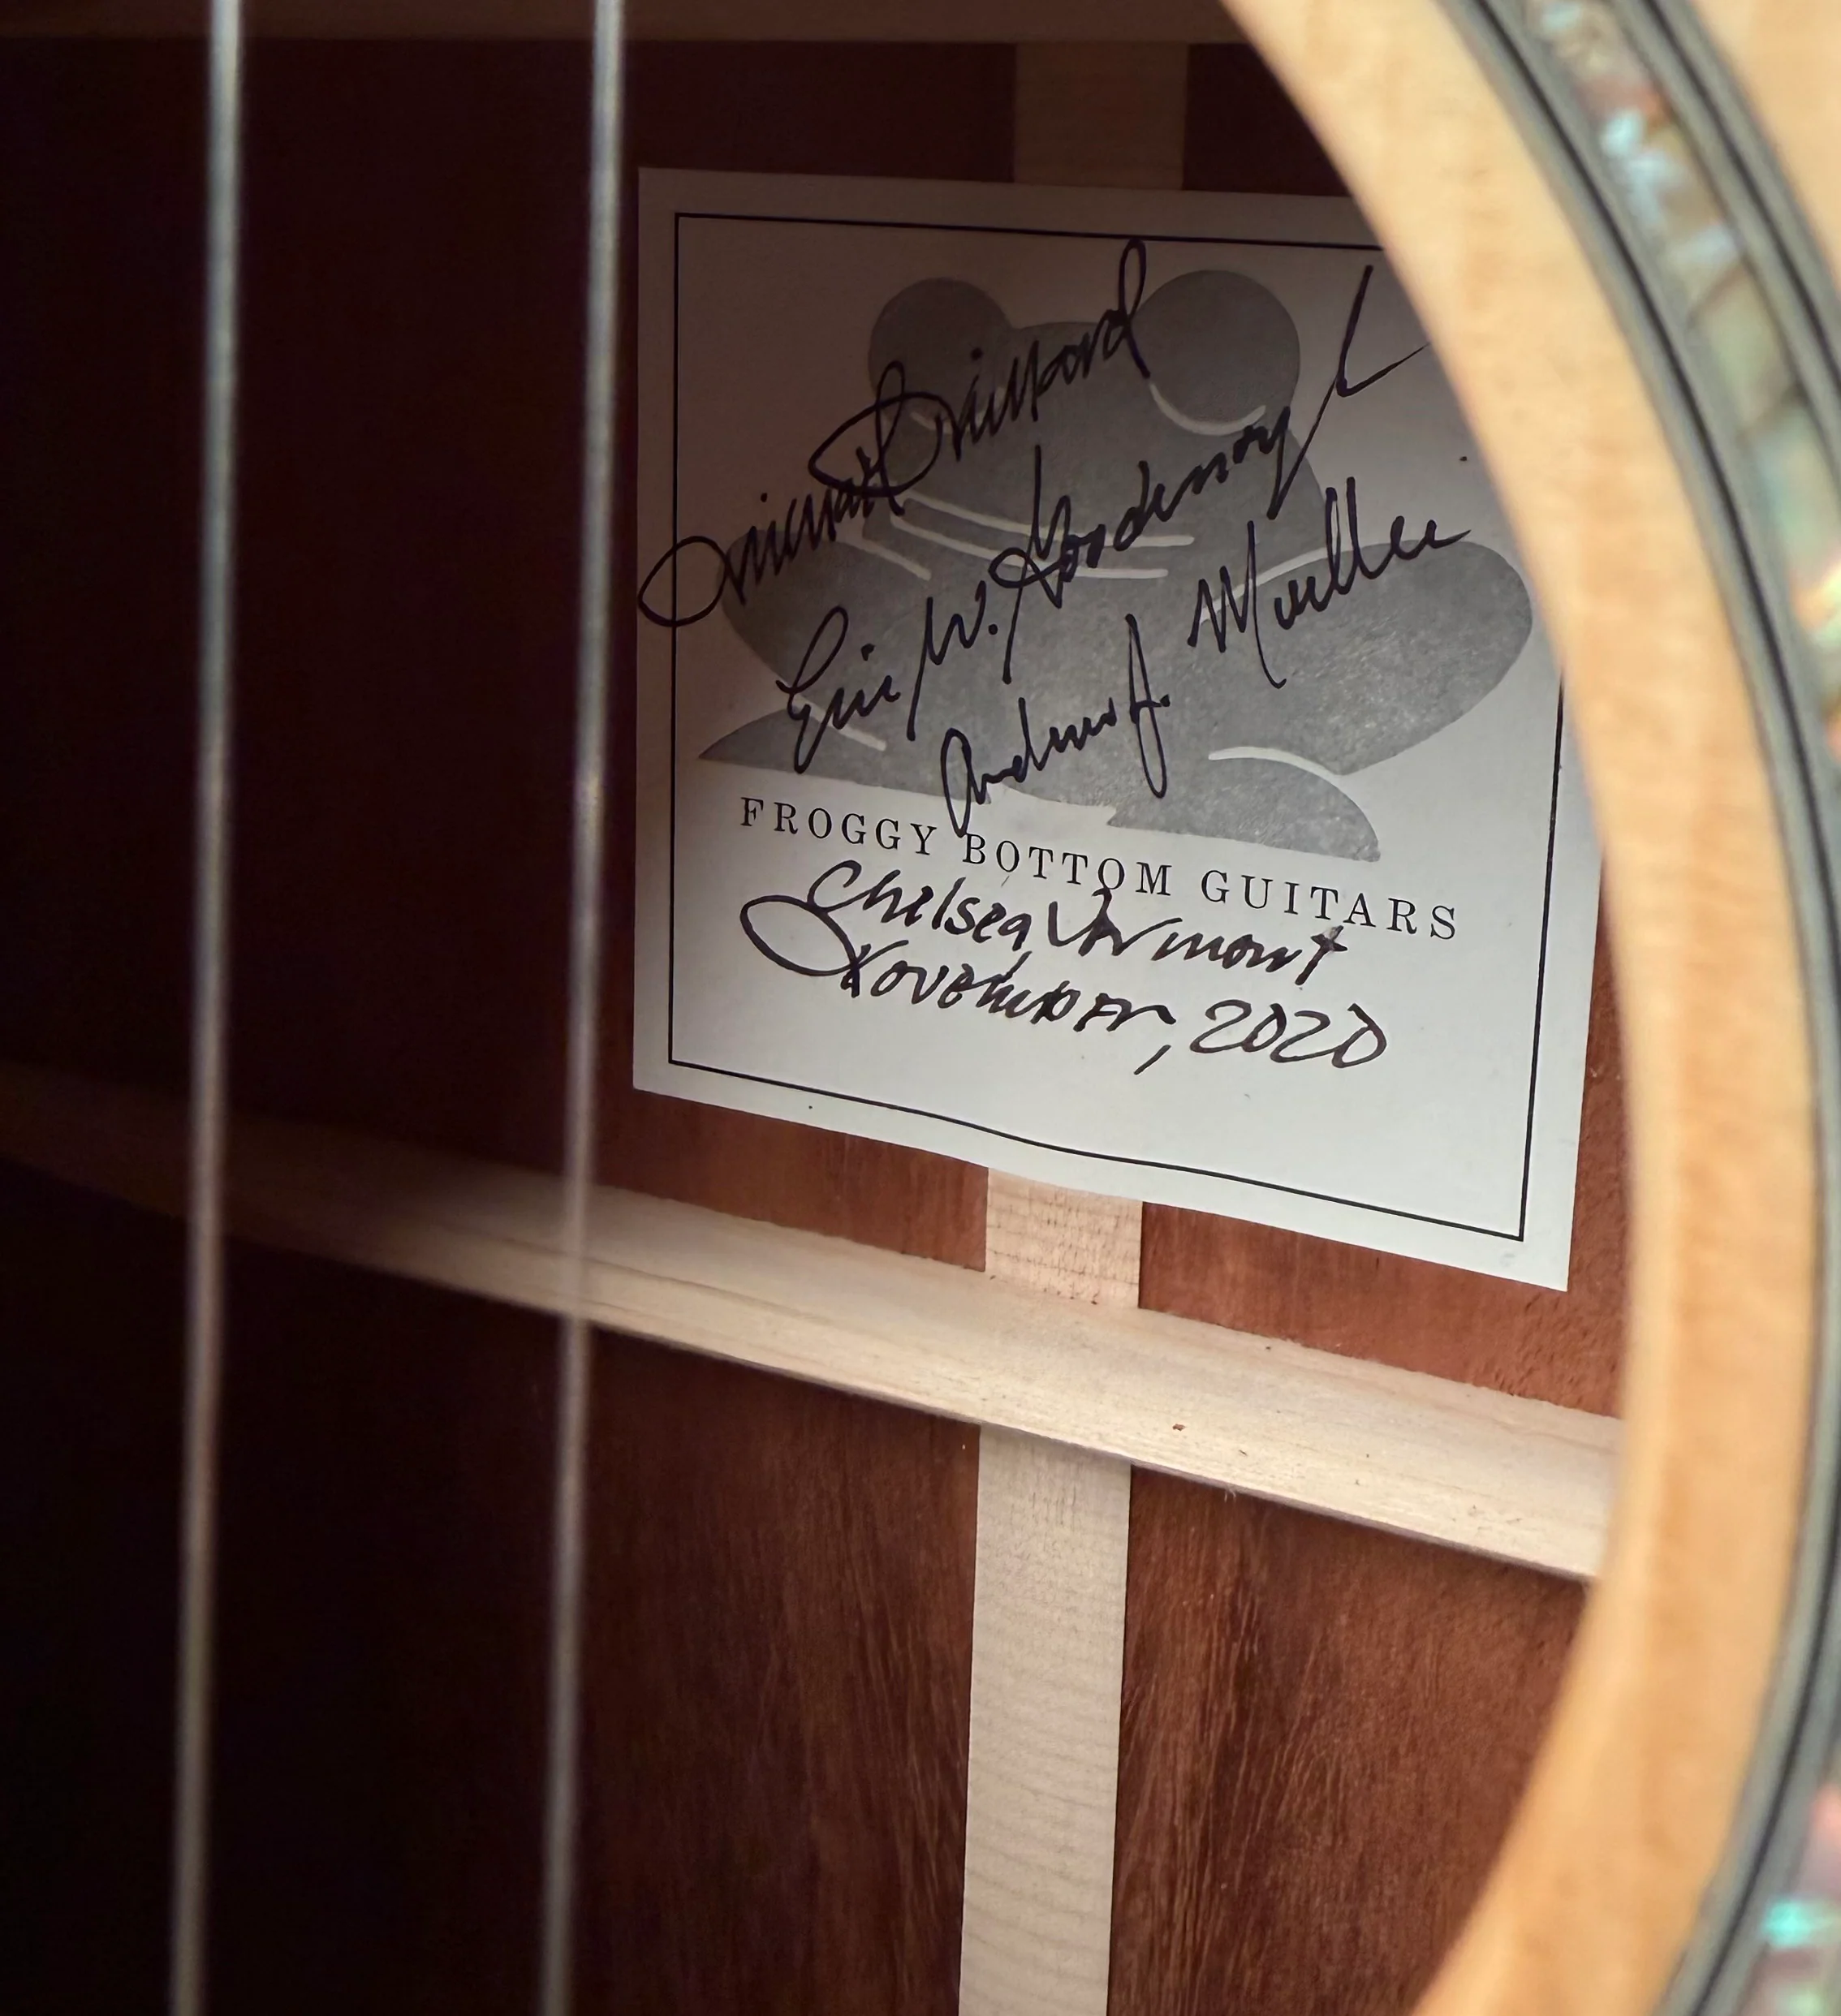 Michael Millard
Eric W. Goodenough
Andrew A. Mueller
FROGGY BOTTOM GUITARS
Chelsea, Vermont
November, 2020